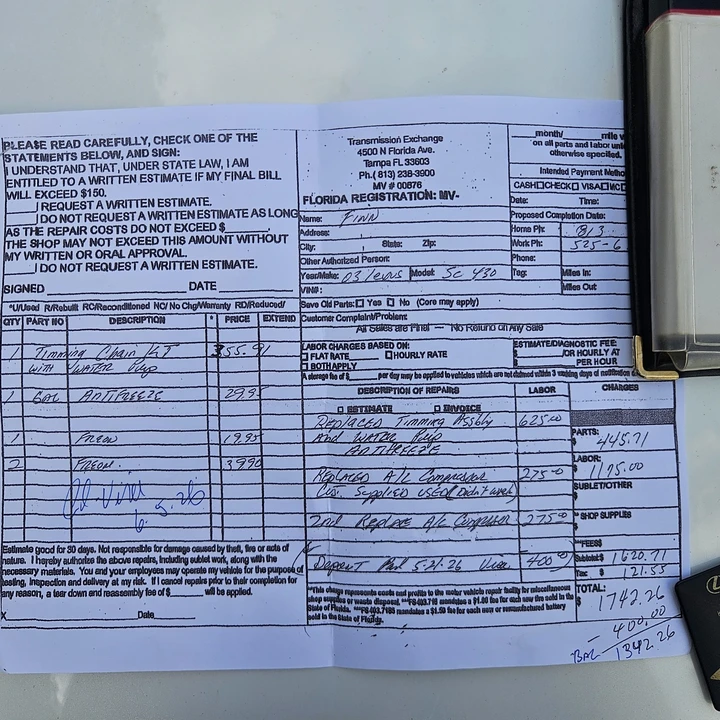 PLEASE READ CAREFULLY, CHECK ONE OF THE
STATEMENTS BELOW, AND SIGN:
I UNDERSTAND THAT, UNDER STATE LAW, I AM
ENTITLED TO A WRITTEN ESTIMATE IF MY FINAL BILL
WILL EXCEED $150.
I REQUEST A WRITTEN ESTIMATE.
I DO NOT REQUEST A WRITTEN ESTIMATE AS LONG
AS THE REPAIR COSTS DO NOT EXCEED $
THE SHOP MAY NOT EXCEED THIS AMOUNT WITHOUT
MY WRITTEN OR ORAL APPROVAL.
I DO NOT REQUEST A WRITTEN ESTIMATE.
SIGNED DATE
Transmission Exchange
4500 N Florida Ave.
Tampa FL 33603
Ph.( 813) 238-3900
MV # 00876
FLORIDA REGISTRATION: MV-
Name: FINN
Address:
City: State: Zip:
Other Authorized Person:
Year/Make: 03 / Lexus Model: SC 430
VIN#:
month/ mile
on all parts and labor
otherwise specified.
Intended Payment
CASH CHECK VISA MC
Date: Time:
Proposed Completion Date:
Home Ph: 813
Work Ph: 525-6
Phone:
Tag: Miles In:
Miles Out
Save Old Parts: Yes No (Core may apply)
Customer Complaint/Problem:
All Sales are Final — No Refund on Any Sale
*U/Used R/Rebuilt RC/Reconditioned NC/ No Chg/Warranty RD/Reduced/
QTY PART NO DESCRIPTION * PRICE EXTEND
1 Timming Chain KiT 355.91
WITH WATER Pump
1 GAL ANTIFREEZE 29.95
1 FREON 19.95
2 FREON 39.90
6.5.26
LABOR CHARGES BASED ON:
FLAT RATE HOURLY RATE
BOTH APPLY
ESTIMATE/DIAGNOSTIC FEE:
$ /OR HOURLY AT
$ PER HOUR
A storage fee of $ per day may be applied to vehicles which are not claimed within 3 working days of notification
DESCRIPTION OF REPAIRS LABOR CHARGES
ESTIMATE INVOICE
Replaced Timming Assbly 625.00
And WATER Pump
ANTIFREEZE
Replaced A/C Compressor 275.00
Cus. Supplied USED (Didn't work)
2nd Replace A/C Compressor 275.00
Deposit Paid 5-21-26 Visa 400.00
PARTS:
$ 445.71
LABOR:
$ 1175.00
SUBLET/OTHER
$
* SHOP SUPPLIES
$
**FEES
Subtotal: $ 1620.71
Tax: $ 121.55
TOTAL:
$ 1742.26
- 400.00
BAL 1342.26
Estimate good for 30 days. Not responsible for damage caused by theft, fire or acts of
nature. I hereby authorize the above repairs, including sublet work, along with the
necessary materials. You and your employees may operate my vehicle for the purpose of
testing, inspection and delivery at my risk. If I cancel repairs prior to their completion for
any reason, a tear down and reassembly fee of $ will be applied.
X Date
*This charge represents costs and profits to the motor vehicle repair facility for miscellaneous
shop supplies or waste disposal. **FS-403.718 mandates a $1.00 fee for each new tire sold in the
State of Florida. **FS-403.7185 mandates a $1.50 fee for each new or remanufactured battery
sold in the State of Florida.